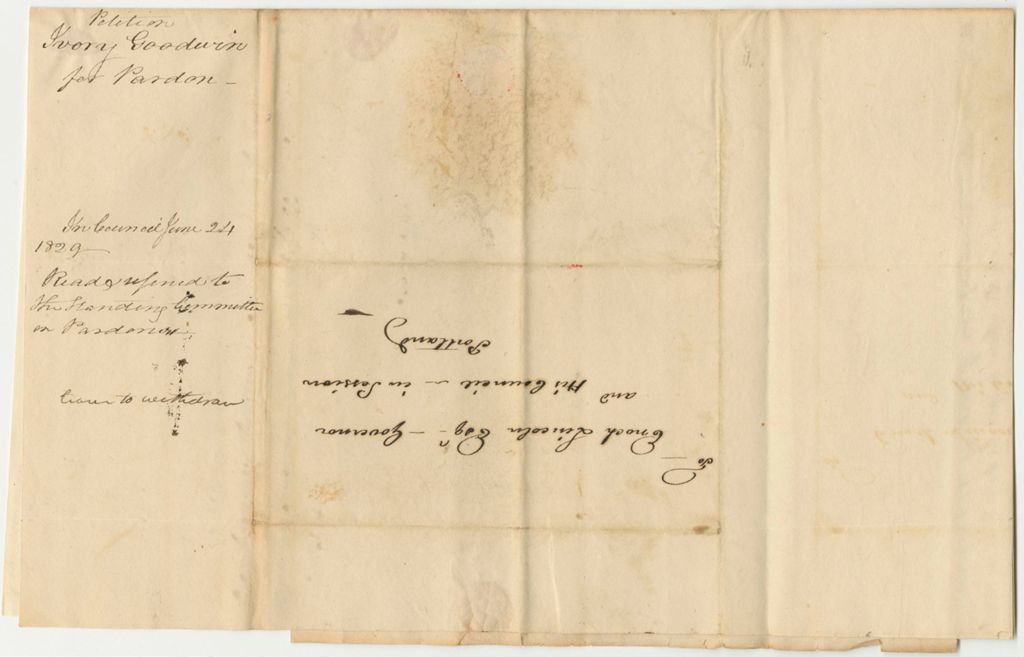 Petition
Ivory Goodwin
for Pardon —
In Council June 24
1829
Read & referred to
the Standing Committee
on Pardons
Leave to withdraw
To
Enoch Lincoln Esqr — Governor
and His Council — in Session
Portland